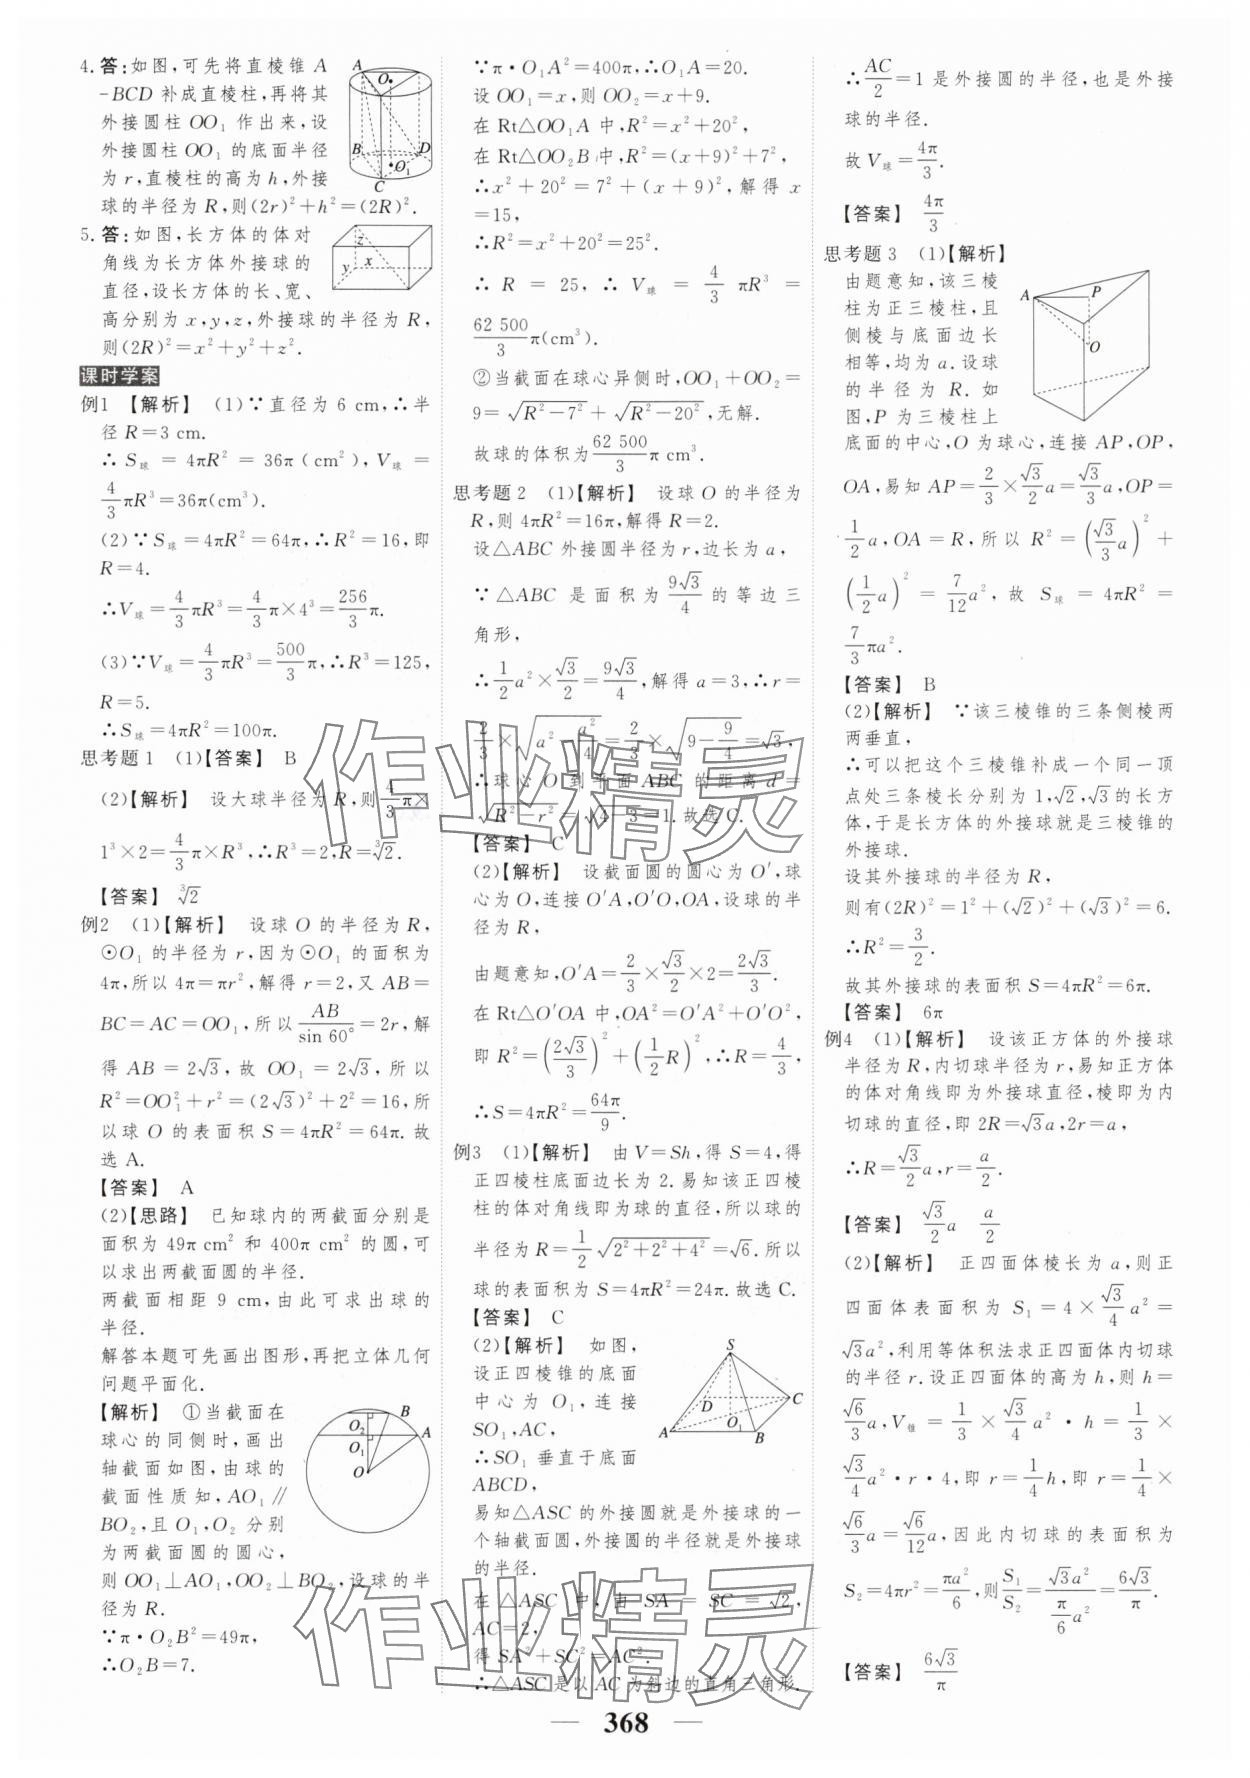 4. 答:如图,可先将直棱锥 A
-BCD 补成直棱柱,再将其
外接圆柱 OO₁ 作出来,设
外接圆柱 OO₁ 的底面半径
为 r,直棱柱的高为 h,外接
球的半径为 R,则(2r)²+h²=(2R)².
5. 答:如图,长方体的体对
角线为长方体外接球的
直径,设长方体的长、宽、
高分别为 x,y,z,外接球的半径为 R,
则(2R)²=x²+y²+z².
课时学案
例1 【解析】 (1)∵直径为 6 cm,∴半
径 R=3 cm.
∴S球=4πR²=36π(cm²),V球=
4/3πR³=36π(cm³).
(2)∵S球=4πR²=64π,∴R²=16,即
R=4.
∴V球=4/3πR³=4/3π×4³=256/3π.
(3)∵V球=4/3πR³=500/3π,∴R³=125,
R=5.
∴S球=4πR²=100π.
思考题1 (1)【答案】 B
(2)【解析】 设大球半径为 R,则4/3π×
1³×2=4/3π×R³,∴R³=2,R=∛2.
【答案】 ∛2
例2 (1)【解析】 设球 O 的半径为 R,
⊙O₁ 的半径为 r,因为⊙O₁ 的面积为
4π,所以 4π=πr²,解得 r=2,又 AB=
BC=AC=OO₁,所以AB/sin 60°=2r,解
得 AB=2√3,故 OO₁=2√3,所以
R²=OO₁²+r²=(2√3)²+2²=16,所
以球 O 的表面积 S=4πR²=64π.故
选 A.
【答案】 A
(2)【思路】 已知球内的两截面分别是
面积为 49π cm² 和 400π cm² 的圆,可
以求出两截面圆的半径.
两截面相距 9 cm,由此可求出球的
半径.
解答本题可先画出图形,再把立体几何
问题平面化.
【解析】 ①当截面在
球心的同侧时,画出
轴截面如图,由球的
截面性质知,AO₁∥
BO₂,且 O₁,O₂ 分别
为两截面圆的圆心,
则 OO₁⊥AO₁,OO₂⊥BO₂,设球的半
径为 R.
∵π·O₂B²=49π,
∴O₂B=7.
∵π·O₁A²=400π,∴O₁A=20.
设 OO₁=x,则 OO₂=x+9.
在 Rt△OO₁A 中,R²=x²+20²,
在 Rt△OO₂B 中,R²=(x+9)²+7²,
∴x²+20²=7²+(x+9)²,解得 x
=15,
∴R²=x²+20²=25².
∴R=25,∴V球=4/3πR³=
62 500/3π(cm³).
②当截面在球心异侧时,OO₁+OO₂=
9=√(R²-7²)+√(R²-20²),无解.
故球的体积为62 500/3π cm³.
思考题2 (1)【解析】 设球 O 的半径为
R,则 4πR²=16π,解得 R=2.
设△ABC 外接圆半径为 r,边长为 a,
∵△ABC 是面积为9√3/4的等边三
角形,
∴1/2a²×√3/2=9√3/4,解得 a=3,∴r=
2/3×√(a²-a²/4)=2/3×√(9-9/4)=√3,
∴球心 O 到平面 ABC 的距离 d=
√(R²-r²)=√(4-3)=1.故选 C.
【答案】 C
(2)【解析】 设截面圆的圆心为 O′,球
心为 O,连接 O′A,O′O,OA,设球的半
径为 R,
由题意知,O′A=2/3×√3/2×2=2√3/3.
在 Rt△O′OA 中,OA²=O′A²+O′O²,
即 R²=(2√3/3)²+(1/2R)²,∴R=4/3,
∴S=4πR²=64π/9.
例3 (1)【解析】 由 V=Sh,得 S=4,得
正四棱柱底面边长为 2.易知该正四棱
柱的体对角线即为球的直径,所以球的
半径为 R=1/2√(2²+2²+4²)=√6.所以
球的表面积为 S=4πR²=24π.故选 C.
【答案】 C
(2)【解析】 如图,
设正四棱锥的底面
中心为 O₁,连接
SO₁,AC,
∴SO₁ 垂直于底面
ABCD,
易知△ASC 的外接圆就是外接球的一
个轴截面圆,外接圆的半径就是外接球
的半径.
在△ASC 中,由 SA=SC=√2,
AC=2,
得 SA²+SC²=AC².
∴△ASC 是以 AC 为斜边的直角三角形.
∴AC/2=1 是外接圆的半径,也是外接
球的半径.
故 V球=4π/3.
【答案】 4π/3
思考题3 (1)【解析】
由题意知,该三棱
柱为正三棱柱,且
侧棱与底面边长
相等,均为 a.设球
的半径为 R.如
图,P 为三棱柱上
底面的中心,O 为球心,连接 AP,OP,
OA,易知 AP=2/3×√3/2a=√3/3a,OP=
1/2a,OA=R,所以 R²=(√3/3a)²+
(1/2a)²=7/12a²,故 S球=4πR²=
7/3πa².
【答案】 B
(2)【解析】 ∵该三棱锥的三条侧棱两
两垂直,
∴可以把这个三棱锥补成一个同一顶
点处三条棱长分别为 1,√2,√3的长方
体,于是长方体的外接球就是三棱锥的
外接球.
设其外接球的半径为 R,
则有(2R)²=1²+(√2)²+(√3)²=6.
∴R²=3/2.
故其外接球的表面积 S=4πR²=6π.
【答案】 6π
例4 (1)【解析】 设该正方体的外接球
半径为 R,内切球半径为 r,易知正方体
的体对角线即为外接球直径,棱即为内
切球的直径,即 2R=√3a,2r=a,
∴R=√3/2a,r=a/2.
【答案】 √3/2a a/2
(2)【解析】 正四面体棱长为 a,则正
四面体表面积为 S₁=4×√3/4a²=
√3a²,利用等体积法求正四面体内切球
的半径 r.设正四面体的高为 h,则 h=
√6/3a,V锥=1/3×√3/4a²·h=1/3×
√3/4a²·r·4,即 r=1/4h,即 r=1/4×
√6/3a=√6/12a,因此内切球的表面积为
S₂=4πr²=πa²/6,则S₁/S₂=√3a²/(π/6a²)=6√3/π.
【答案】 6√3/π
368
作业精灵
作业精灵